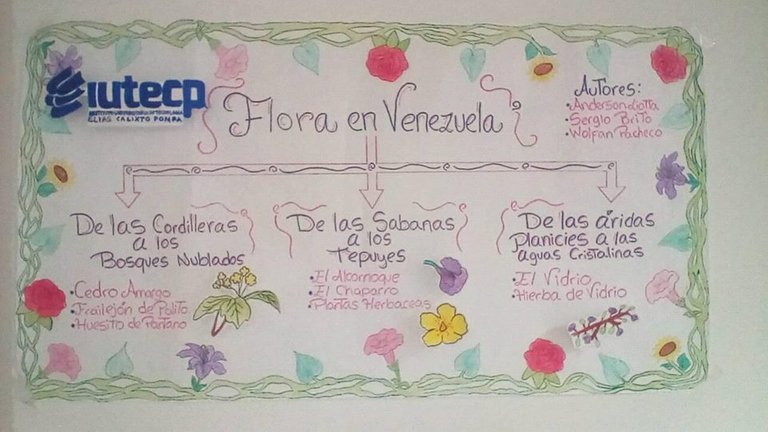 IUTECP
INSTITUTO UNIVERSITARIO DE TECNOLOGIA
ELIAS CALIXTO POMPA
Flora en Venezuela
AUTORES:
• Anderson Liotta
• Sergio Brito
• Wolfan Pacheco
De las Cordilleras
a los
Bosques Nublados
• Cedro Amargo
• Frailejón de Palito
• Huesito de Pantano
De las Sabanas
a los
Tepuyes
• El Alcornoque
• El Chaparro
• Plantas Herbaceas
De las áridas
Planicies a las
aguas Cristalinas
• El Vidrio
• Hierba de Vidrio